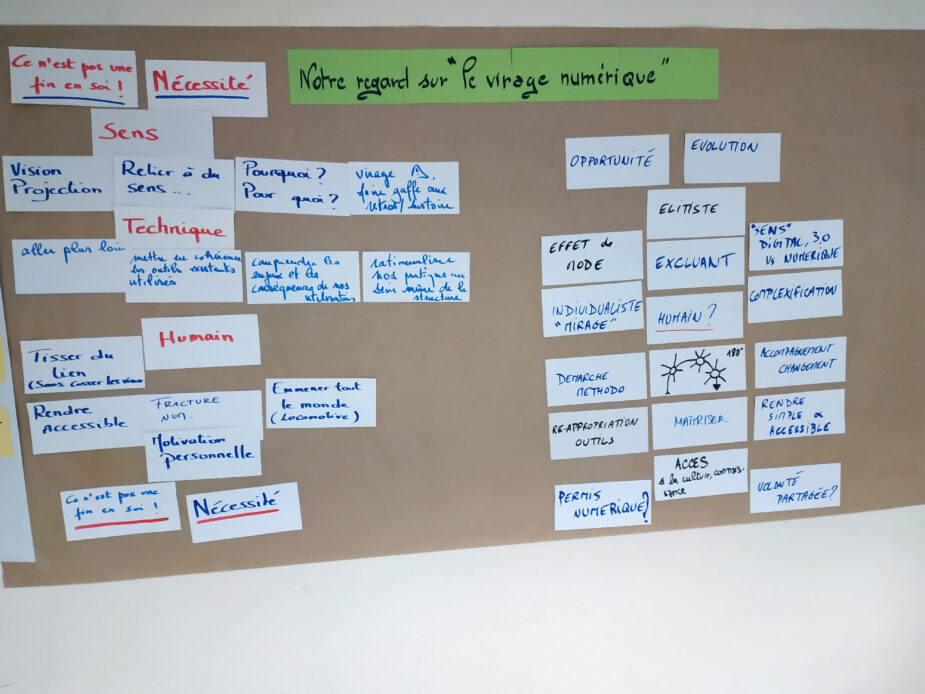 Notre regard sur "le virage numérique"
Ce n'est pas une
fin en soi !
Nécessité
Sens
Vision
Projection
Relier à du
sens...
Pourquoi ?
Pour quoi ?
virage
faire gaffe aux
histoire
Technique
aller plus loin
mettre en cohérence
les outils existants
utilisés
comprendre les
enjeux et les
conséquences de nos
utilisations
rationnaliser
nos pratiques au
sein même de la
structure
Humain
Tisser du
lien
(sans casser les vieux)
Rendre
Accessible
FRACTURE
NUM.
Emmener tout
le monde
(Locomotive)
Motivation
personnelle
Ce n'est pas une
fin en soi !
Nécessité
OPPORTUNITÉ
EVOLUTION
ELITISTE
EFFET de
MODE
EXCLUANT
"SENS"
DIGITAL, 3.0
VS NUMERIQUE
INDIVIDUALISTE
"MIRAGE"
HUMAIN ?
COMPLEXIFICATION
DEMARCHE
METHODO
180°
ACCOMPAGNEMENT
CHANGEMENT
RE-APPROPRIATION
OUTILS
MAÎTRISER
RENDRE
SIMPLE &
ACCESSIBLE
PERMIS
NUMERIQUE ?
ACCES
à la culture, connais-
sance
VOLONTÉ
PARTAGÉE ?